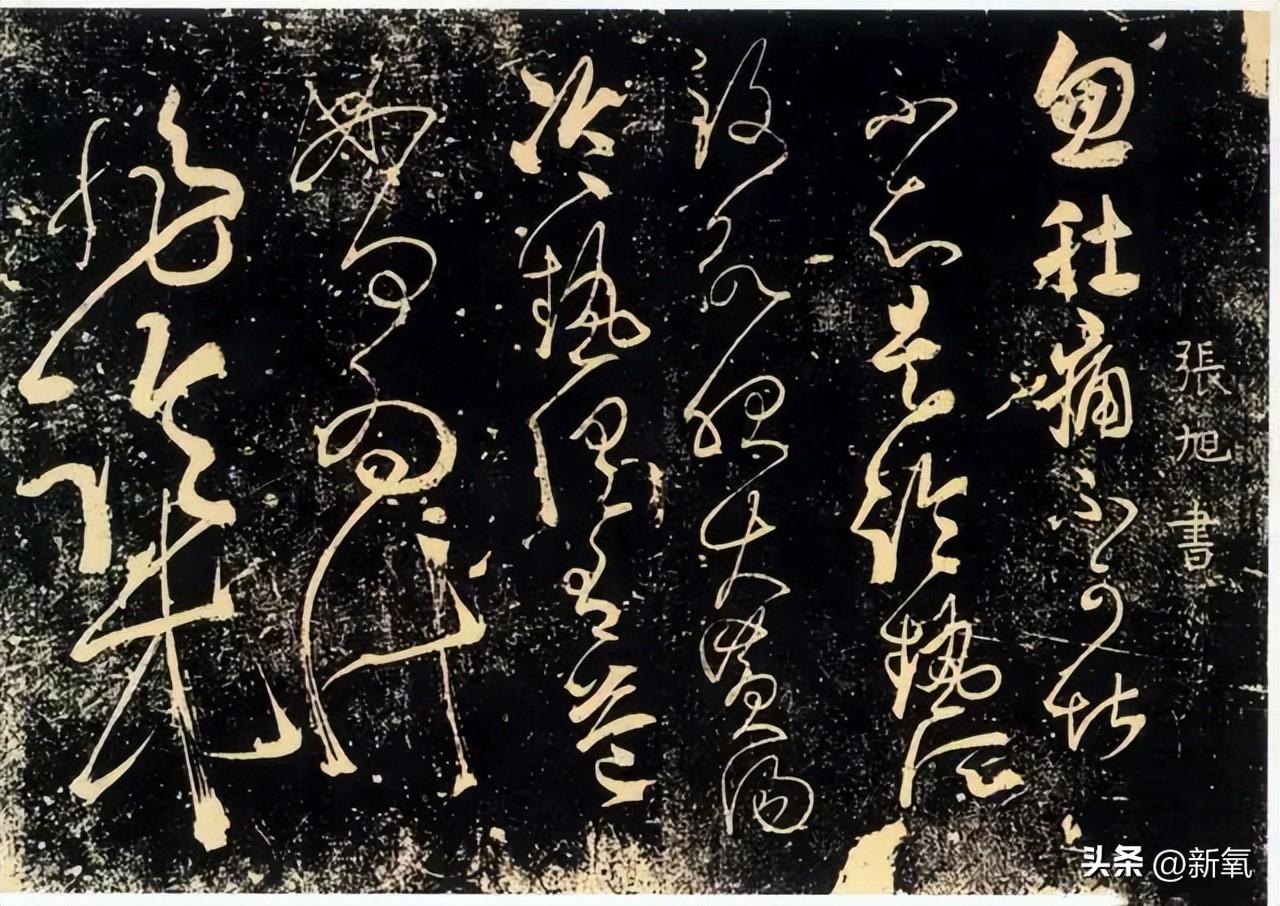 張旭書
忽肚痛不可堪
不知是冷熱所
致欲服大黃湯
冷熱俱有益
如何為計
非臨床
头条 @新氧